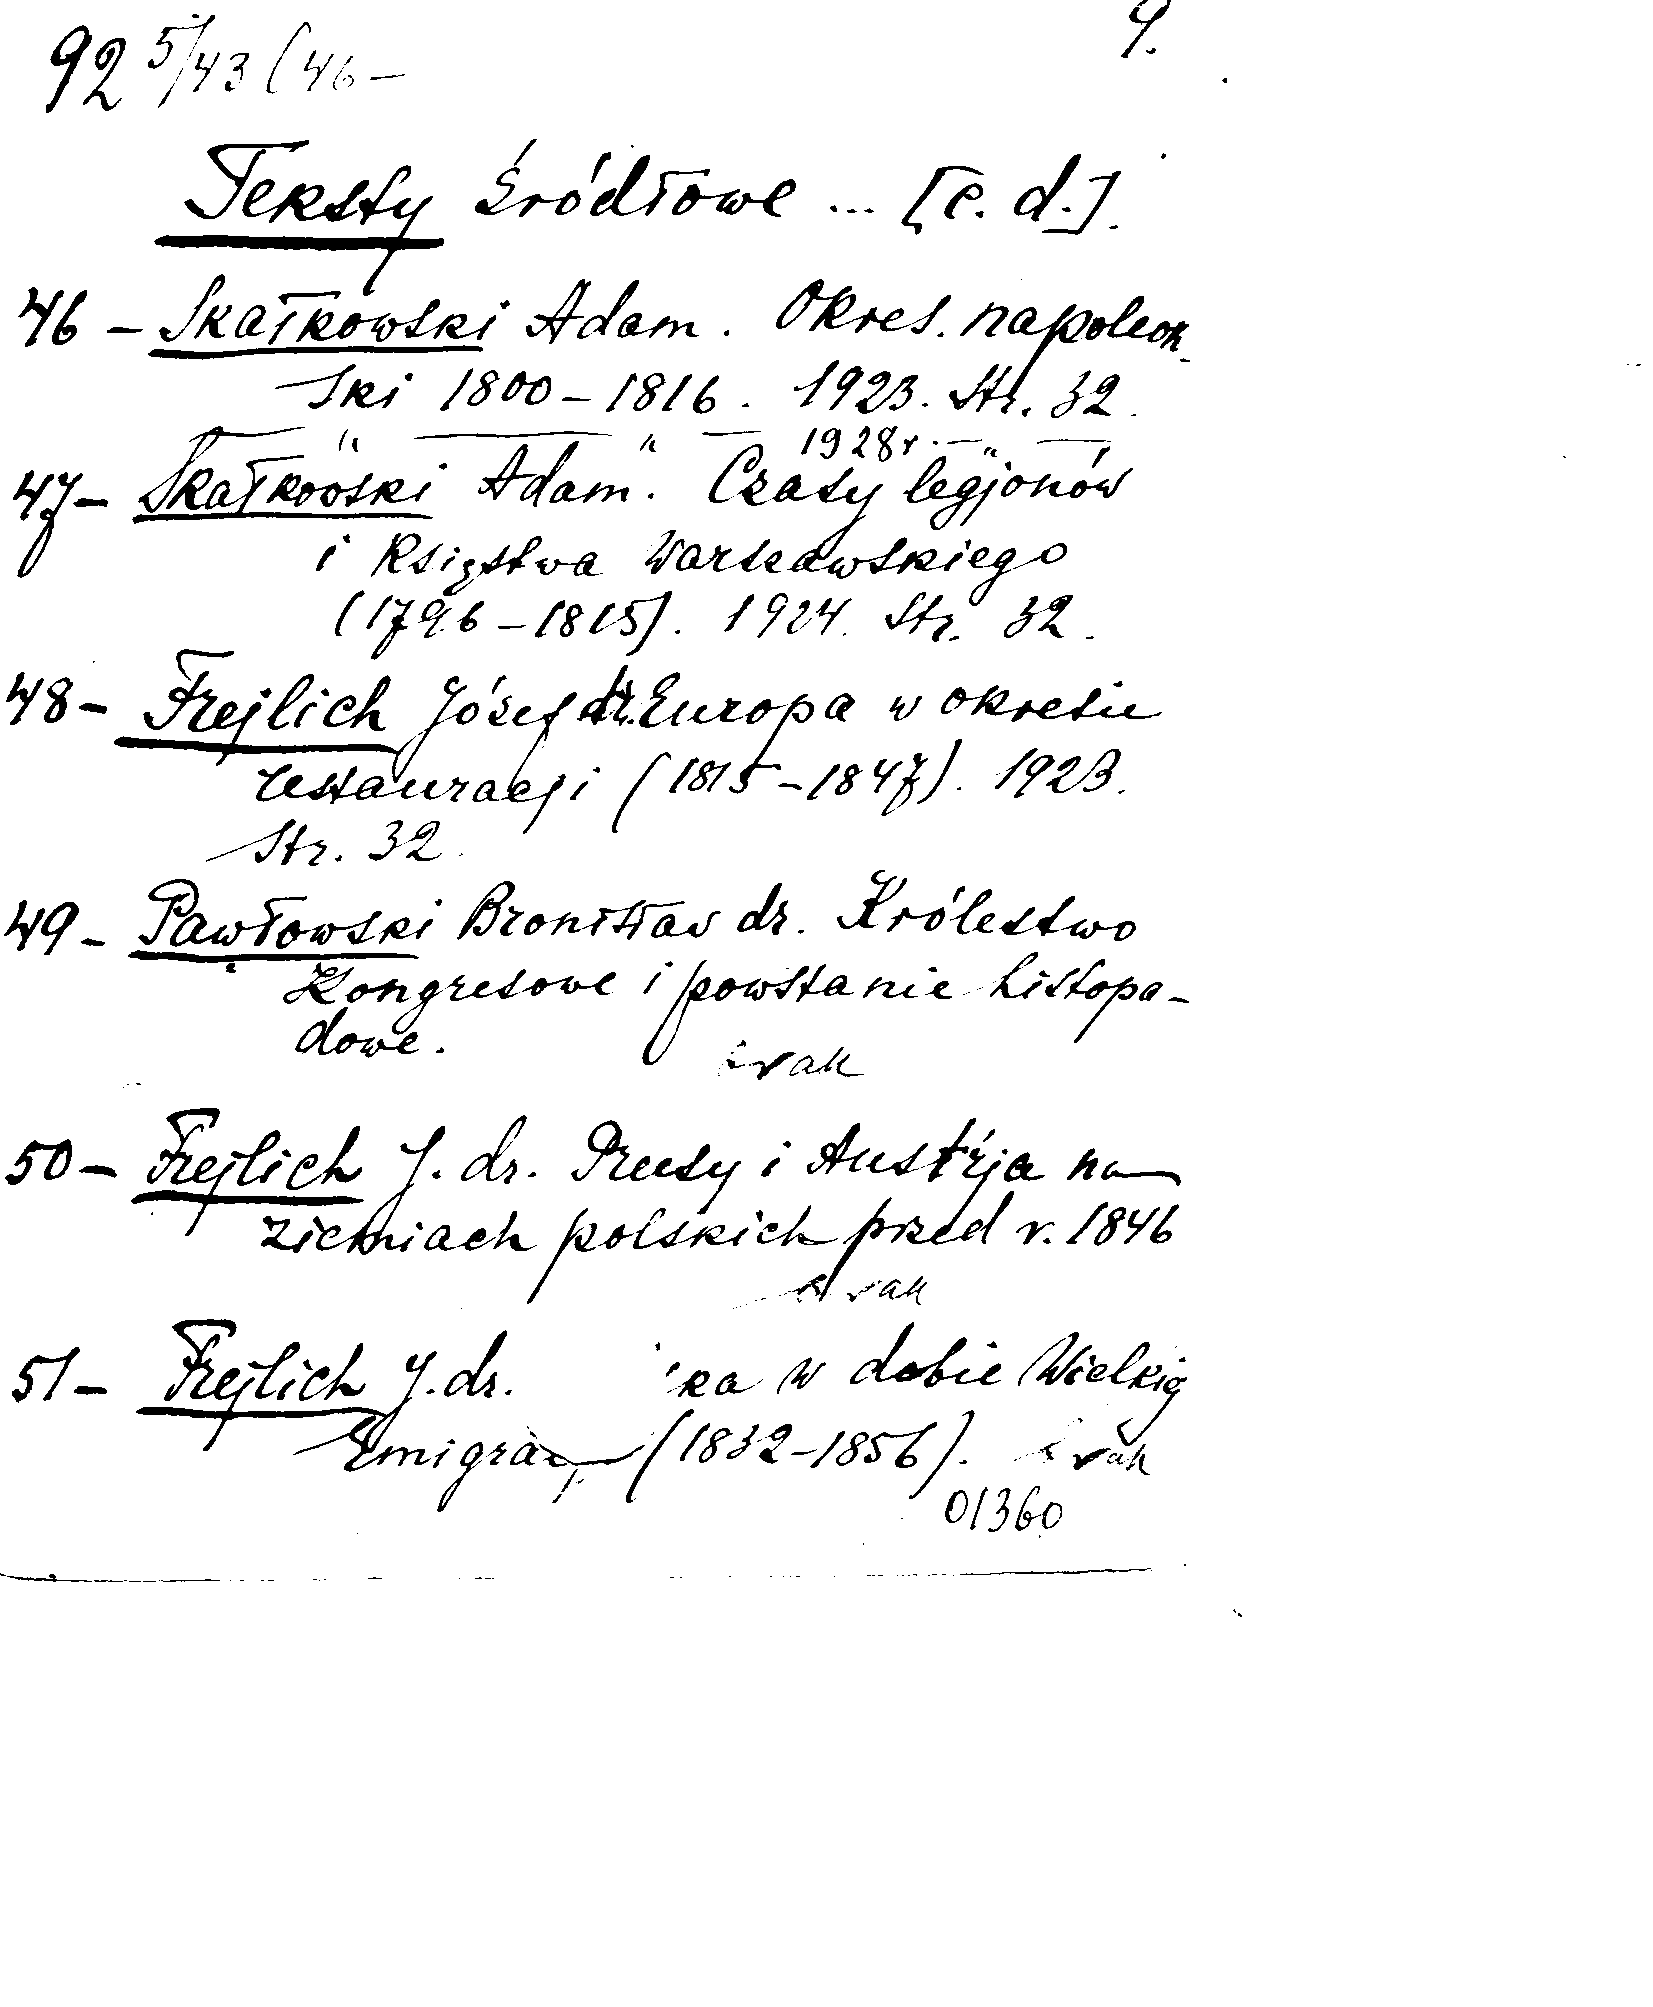 92 5/43 (46 -
9.
Teksty źródłowe ... [c. d.].
46 - Skałkowski Adam. Okres. napoleoń-
ski 1800 - 1816. 1923. Str. 32.
— " — " — 1928 r. — " —
47 - Skałkowski Adam. Czasy legjonów
i Księstwa Warszawskiego
(1796 - 1815). 1924. Str. 32.
48 - Frejlich Józef dr. Europa w okresie
restauracji (1815 - 1847). 1923.
Str. 32.
49 - Pawłowski Bronisław dr. Królestwo
Kongresowe i powstanie listopa-
dowe. brak
50 - Frejlich J. dr. Prusy i Austrja na
ziemiach polskich przed r. 1846
brak
51 - Frejlich J. dr. w dobie Wielkiej
(1832 - 1856). brak
01360